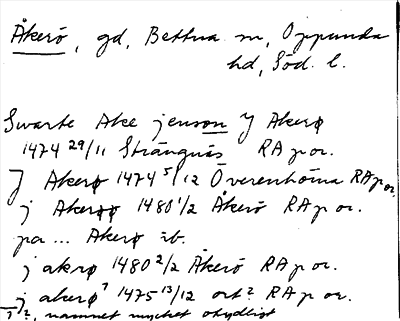 Åkerö, gd, Bettna sn, Oppunda
hd, Söd. l.
Swarte Ake jenson J Akerø
1474 29/11 Strängnäs RA p or.
J Akerø 1474 5/12 Överenhörna RA p or.
j Akerøø 1480 1/2 Åkerö RA p or.
pa ... Akerø ib.
j akrø 1480 2/2 Åkerö RA p or.
j akerø? 1475 13/12 ort? RA p or.
?, namnet mycket otydligt